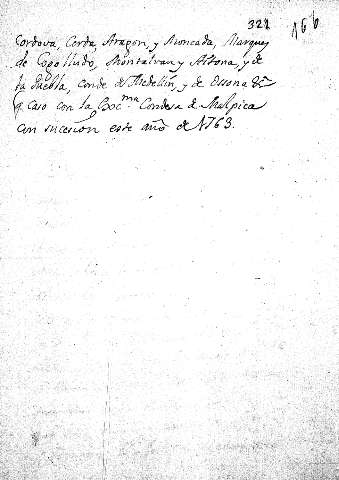 321 166
Cordova, Cerda, Aragon, y Moncada, Marques
de Cogolludo, Montalvan y Aitona, y de
la Puebla, Conde de Medellin, y de Ossona &a
q. Caso con la Exc.ma Condesa de Malpica
con sucesion este año de 1763.